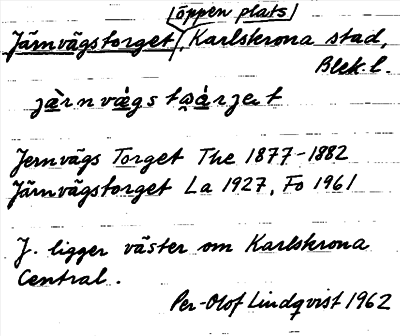 öppen plats
Järnvägstorget, Karlskrona stad,
Blek. l.
jà̱rnvà̱gstωà̱rjət
Jernvägs Torget The 1877-1882
Järnvägstorget La 1927, Fo 1961
J. ligger väster om Karlskrona
Central.
Per-Olof Lindqvist 1962